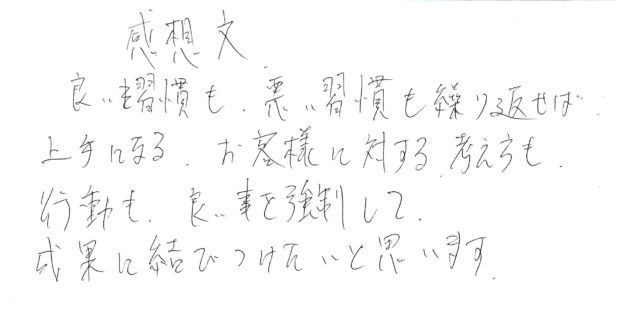 感想文
良い習慣も、悪い習慣も繰り返せば、
上手になる、お客様に対する、考え方も、
行動も、良い事を強制して、
成果に結びつけたいと思います。